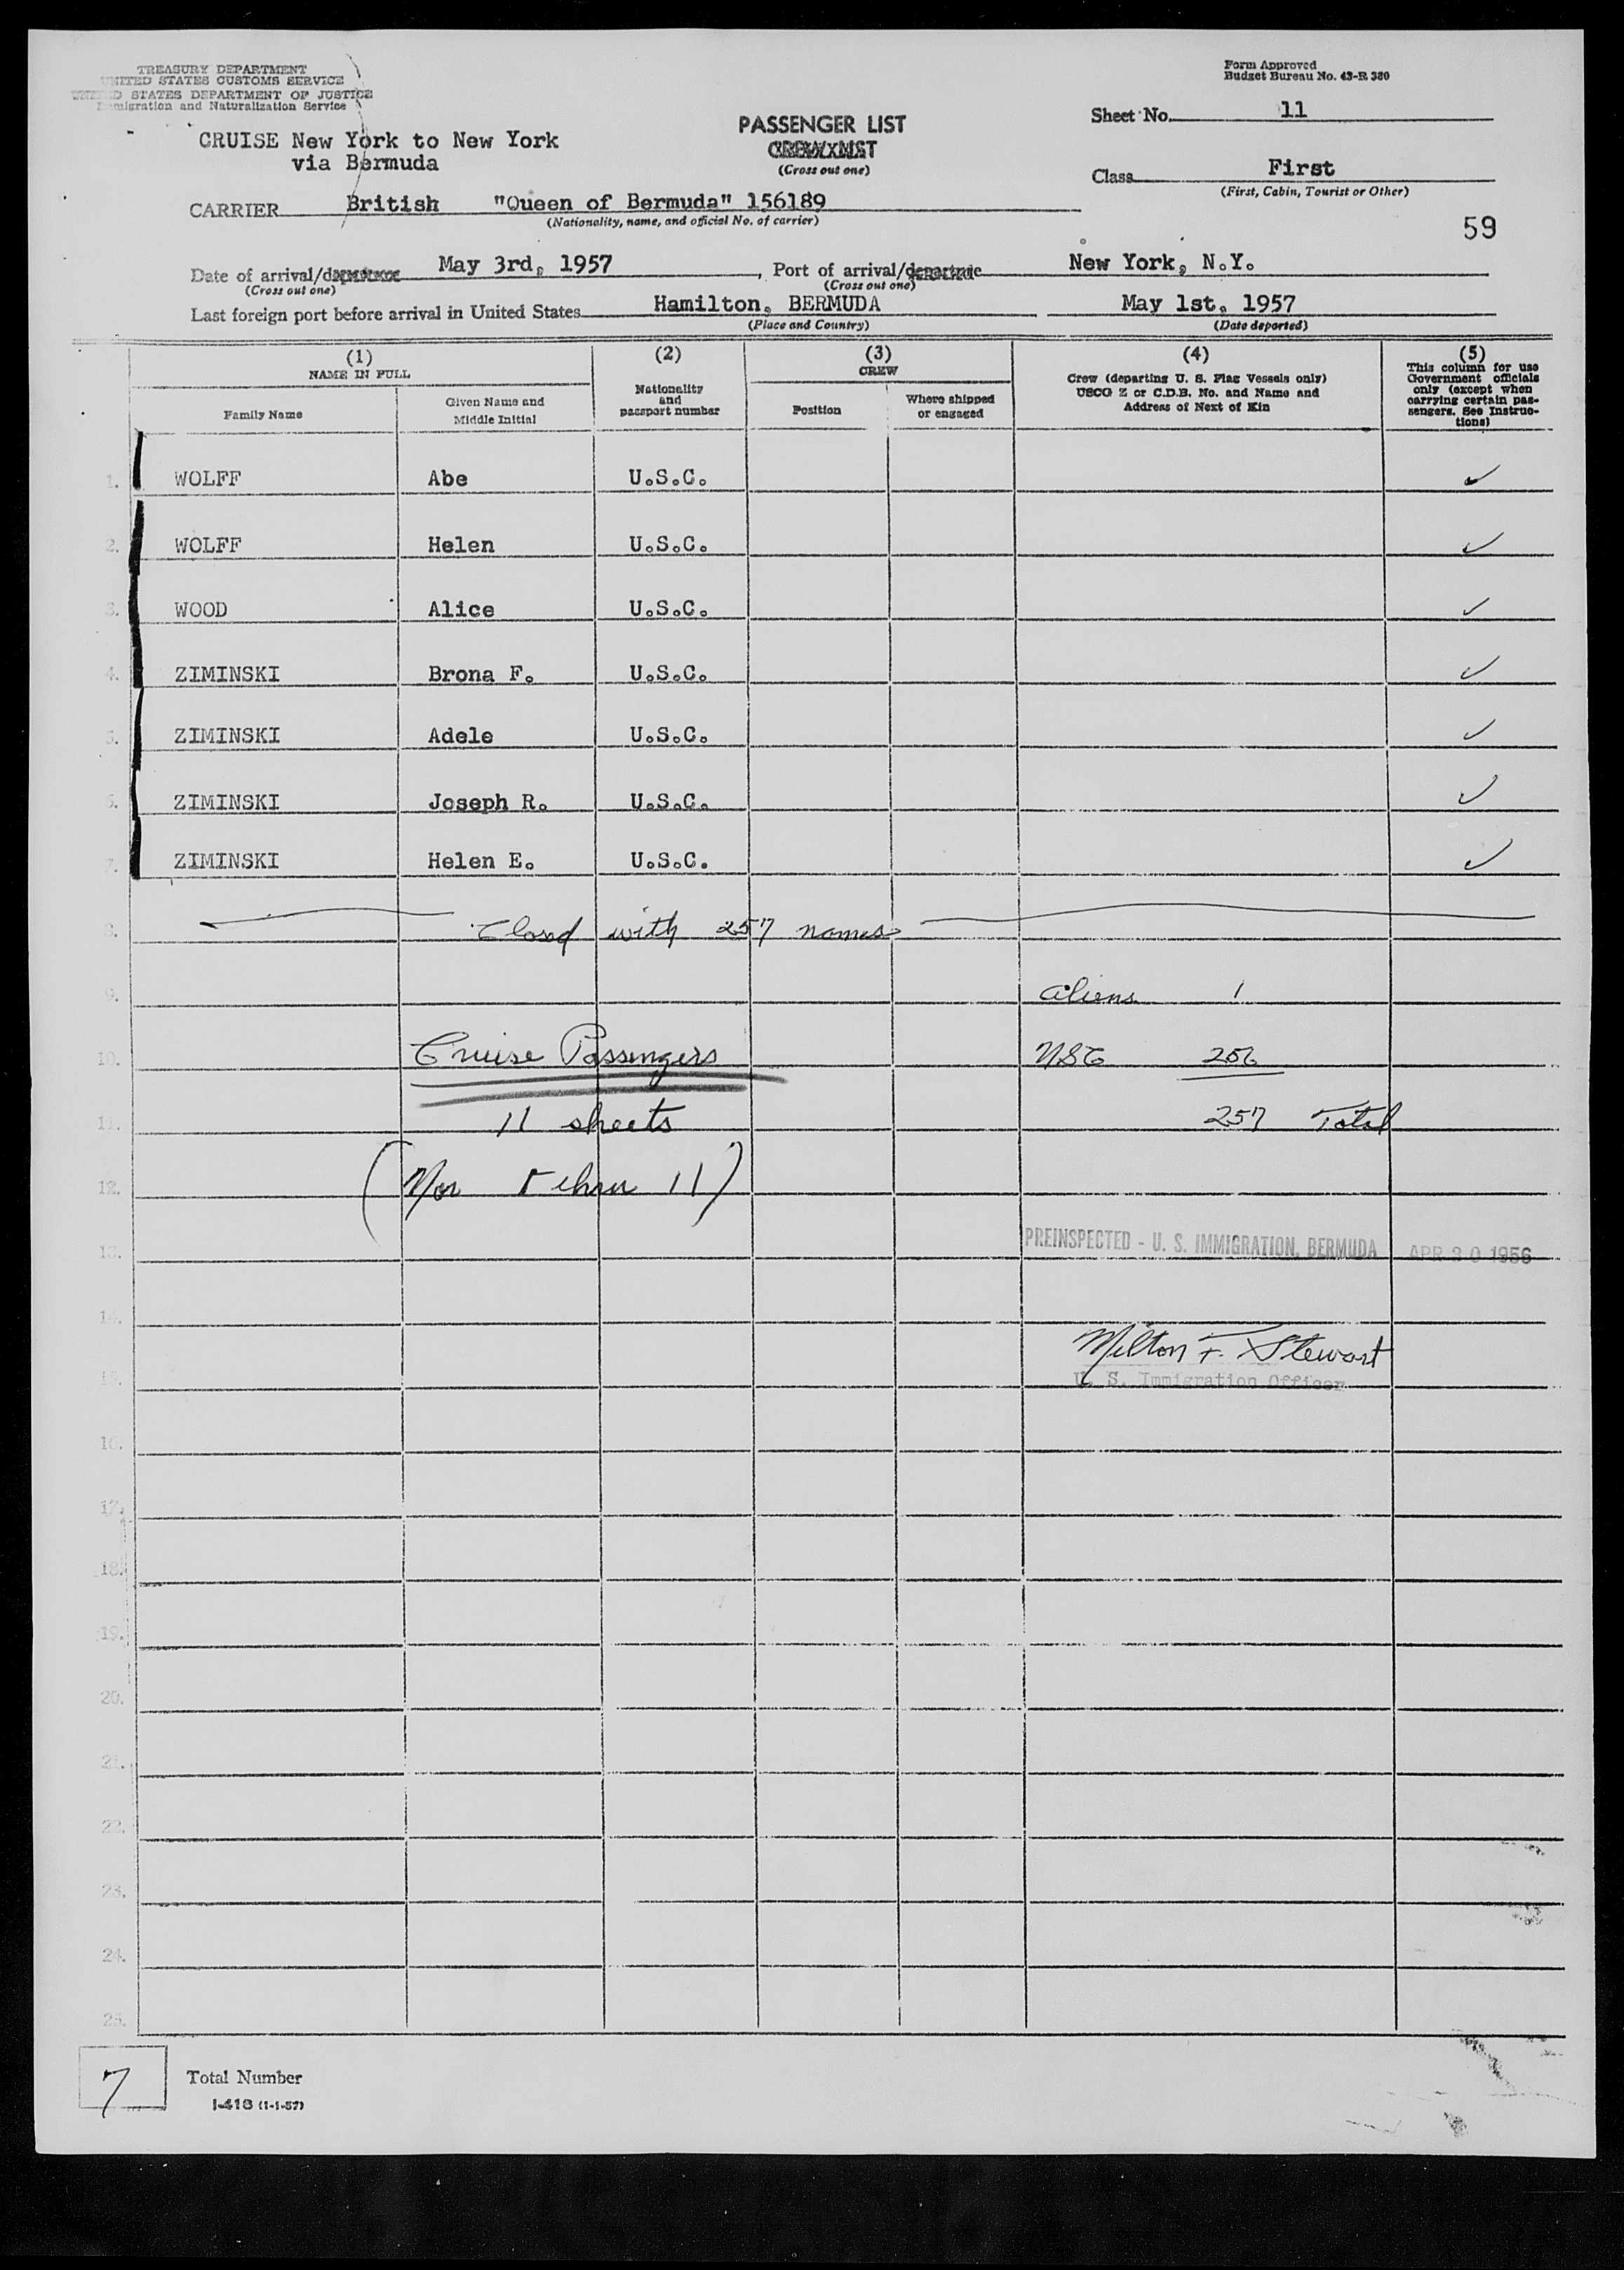 TREASURY DEPARTMENT
UNITED STATES CUSTOMS SERVICE
UNITED STATES DEPARTMENT OF JUSTICE
Immigration and Naturalization Service
Form Approved
Budget Bureau No. 43-R 380
CRUISE New York to New York
via Bermuda
PASSENGER LIST
CREW LIST
(Cross out one)
Sheet No. 11
Class First
(First, Cabin, Tourist or Other)
CARRIER British "Queen of Bermuda" 156189
(Nationality, name, and official No. of carrier)
59
Date of arrival/departure May 3rd, 1957, Port of arrival/departure New York, N.Y.
(Cross out one) (Cross out one)
Last foreign port before arrival in United States Hamilton, BERMUDA May 1st, 1957
(Place and Country) (Date departed)
(1) (2) (3) (4) (5)
NAME IN FULL
Family Name
Given Name and Middle Initial
Nationality and passport number
CREW
Position
Where shipped or engaged
Crew (departing U. S. Flag Vessels only)
USCG Z or C.D.B. No. and Name and
Address of Next of Kin
This column for use
Government officials
only (except when
carrying certain pas-
sengers. See Instruc-
tions)
1. WOLFF Abe U.S.C. ✓
2. WOLFF Helen U.S.C. ✓
3. WOOD Alice U.S.C. ✓
4. ZIMINSKI Brona F. U.S.C. ✓
5. ZIMINSKI Adele U.S.C. ✓
6. ZIMINSKI Joseph R. U.S.C. ✓
7. ZIMINSKI Helen E. U.S.C. ✓
8. Closed with 257 names
9. Aliens 1
10. Cruise Passengers USC 256
11. 11 sheets 257 Total
12. (Nos 11)
13. PREINSPECTED - U. S. IMMIGRATION, BERMUDA APR 30 1956
14. Milton F. Stewart
15. U. S. Immigration Officer
16.
17.
18.
19.
20.
21.
22.
23.
24.
25.
7 Total Number
I-418 (1-1-57)